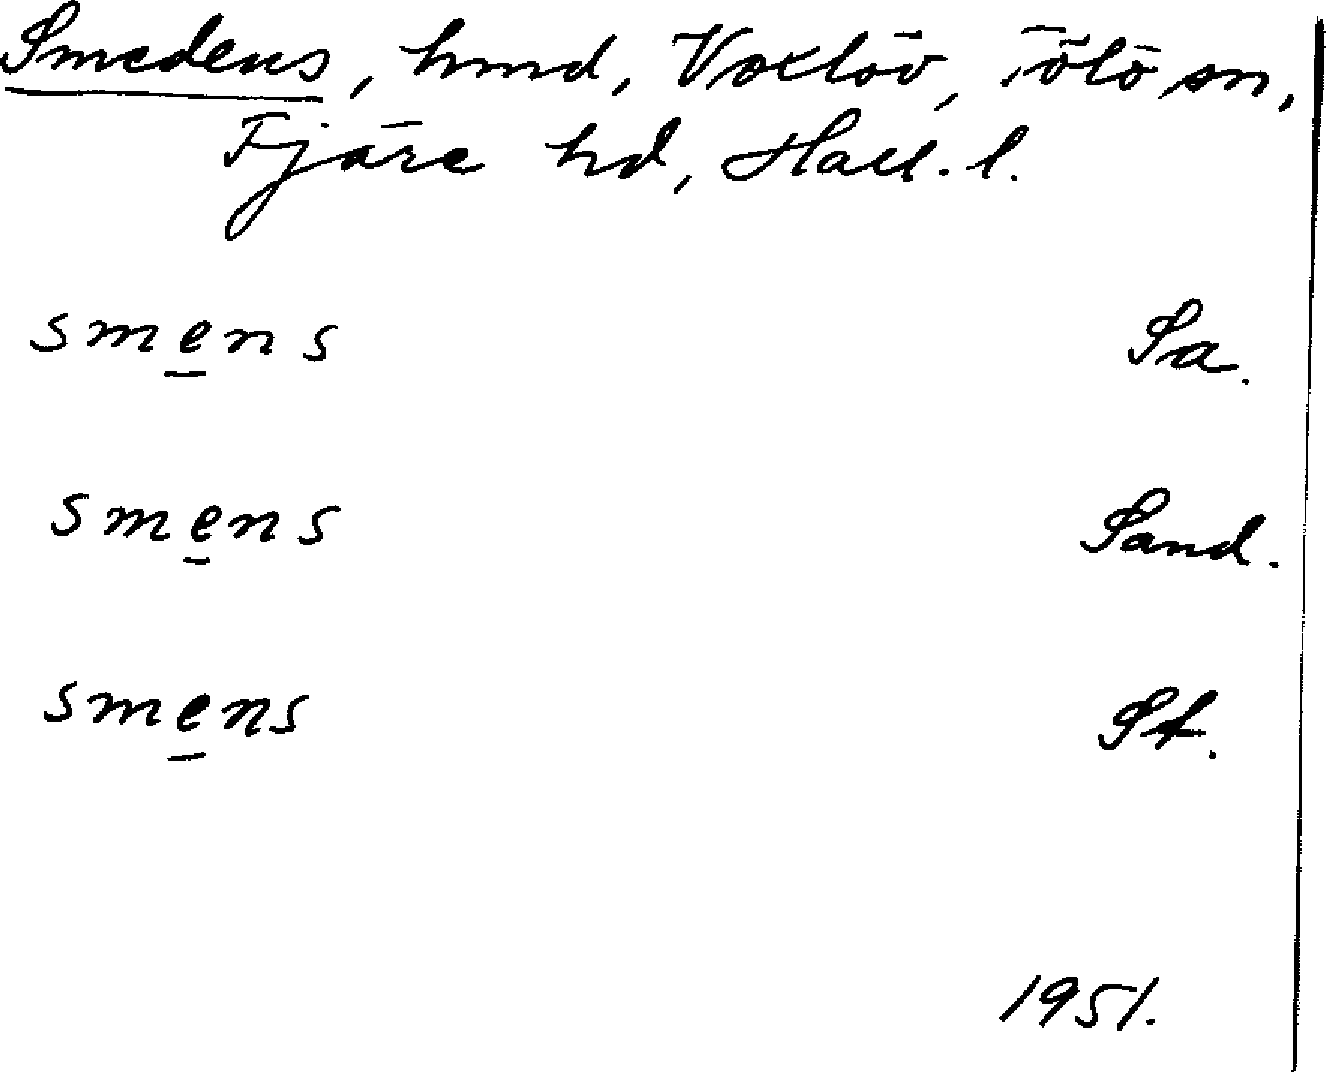 Smedens, hmd, Voxlöv, Tölö sn,
Fjäre hd, Hall. l.
smens Sa.
smens Sand.
smens St.
1951.